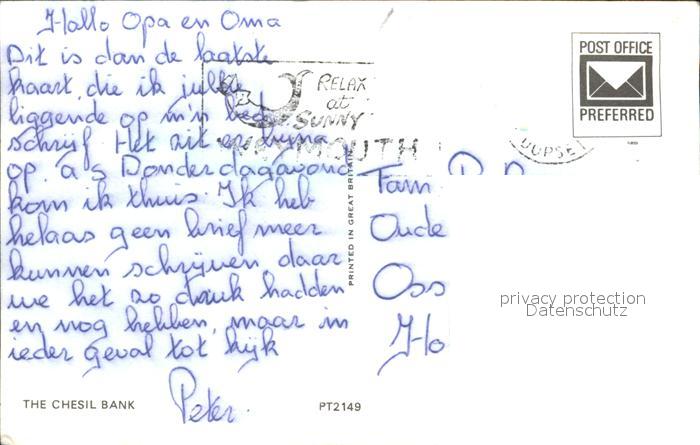 Hallo Opa en Oma
Dit is dan de laatste
kaart, die ik jullie
liggende op m'n bed
schrijf. Het zit er bijna
op. a's Donderdagavond
kom ik thuis. Ik heb
helaas geen brief meer
kunnen schrijven daar
we het zo druk hadden
en nog hebben, maar in
ieder geval tot kijk
Peter.
THE CHESIL BANK
PT2149
PRINTED IN GREAT BRITAIN
RELAX
at
SUNNY
MOUTH
POST OFFICE
PREFERRED
Fam
Oude
Oss
Ho
privacy protection
Datenschutz